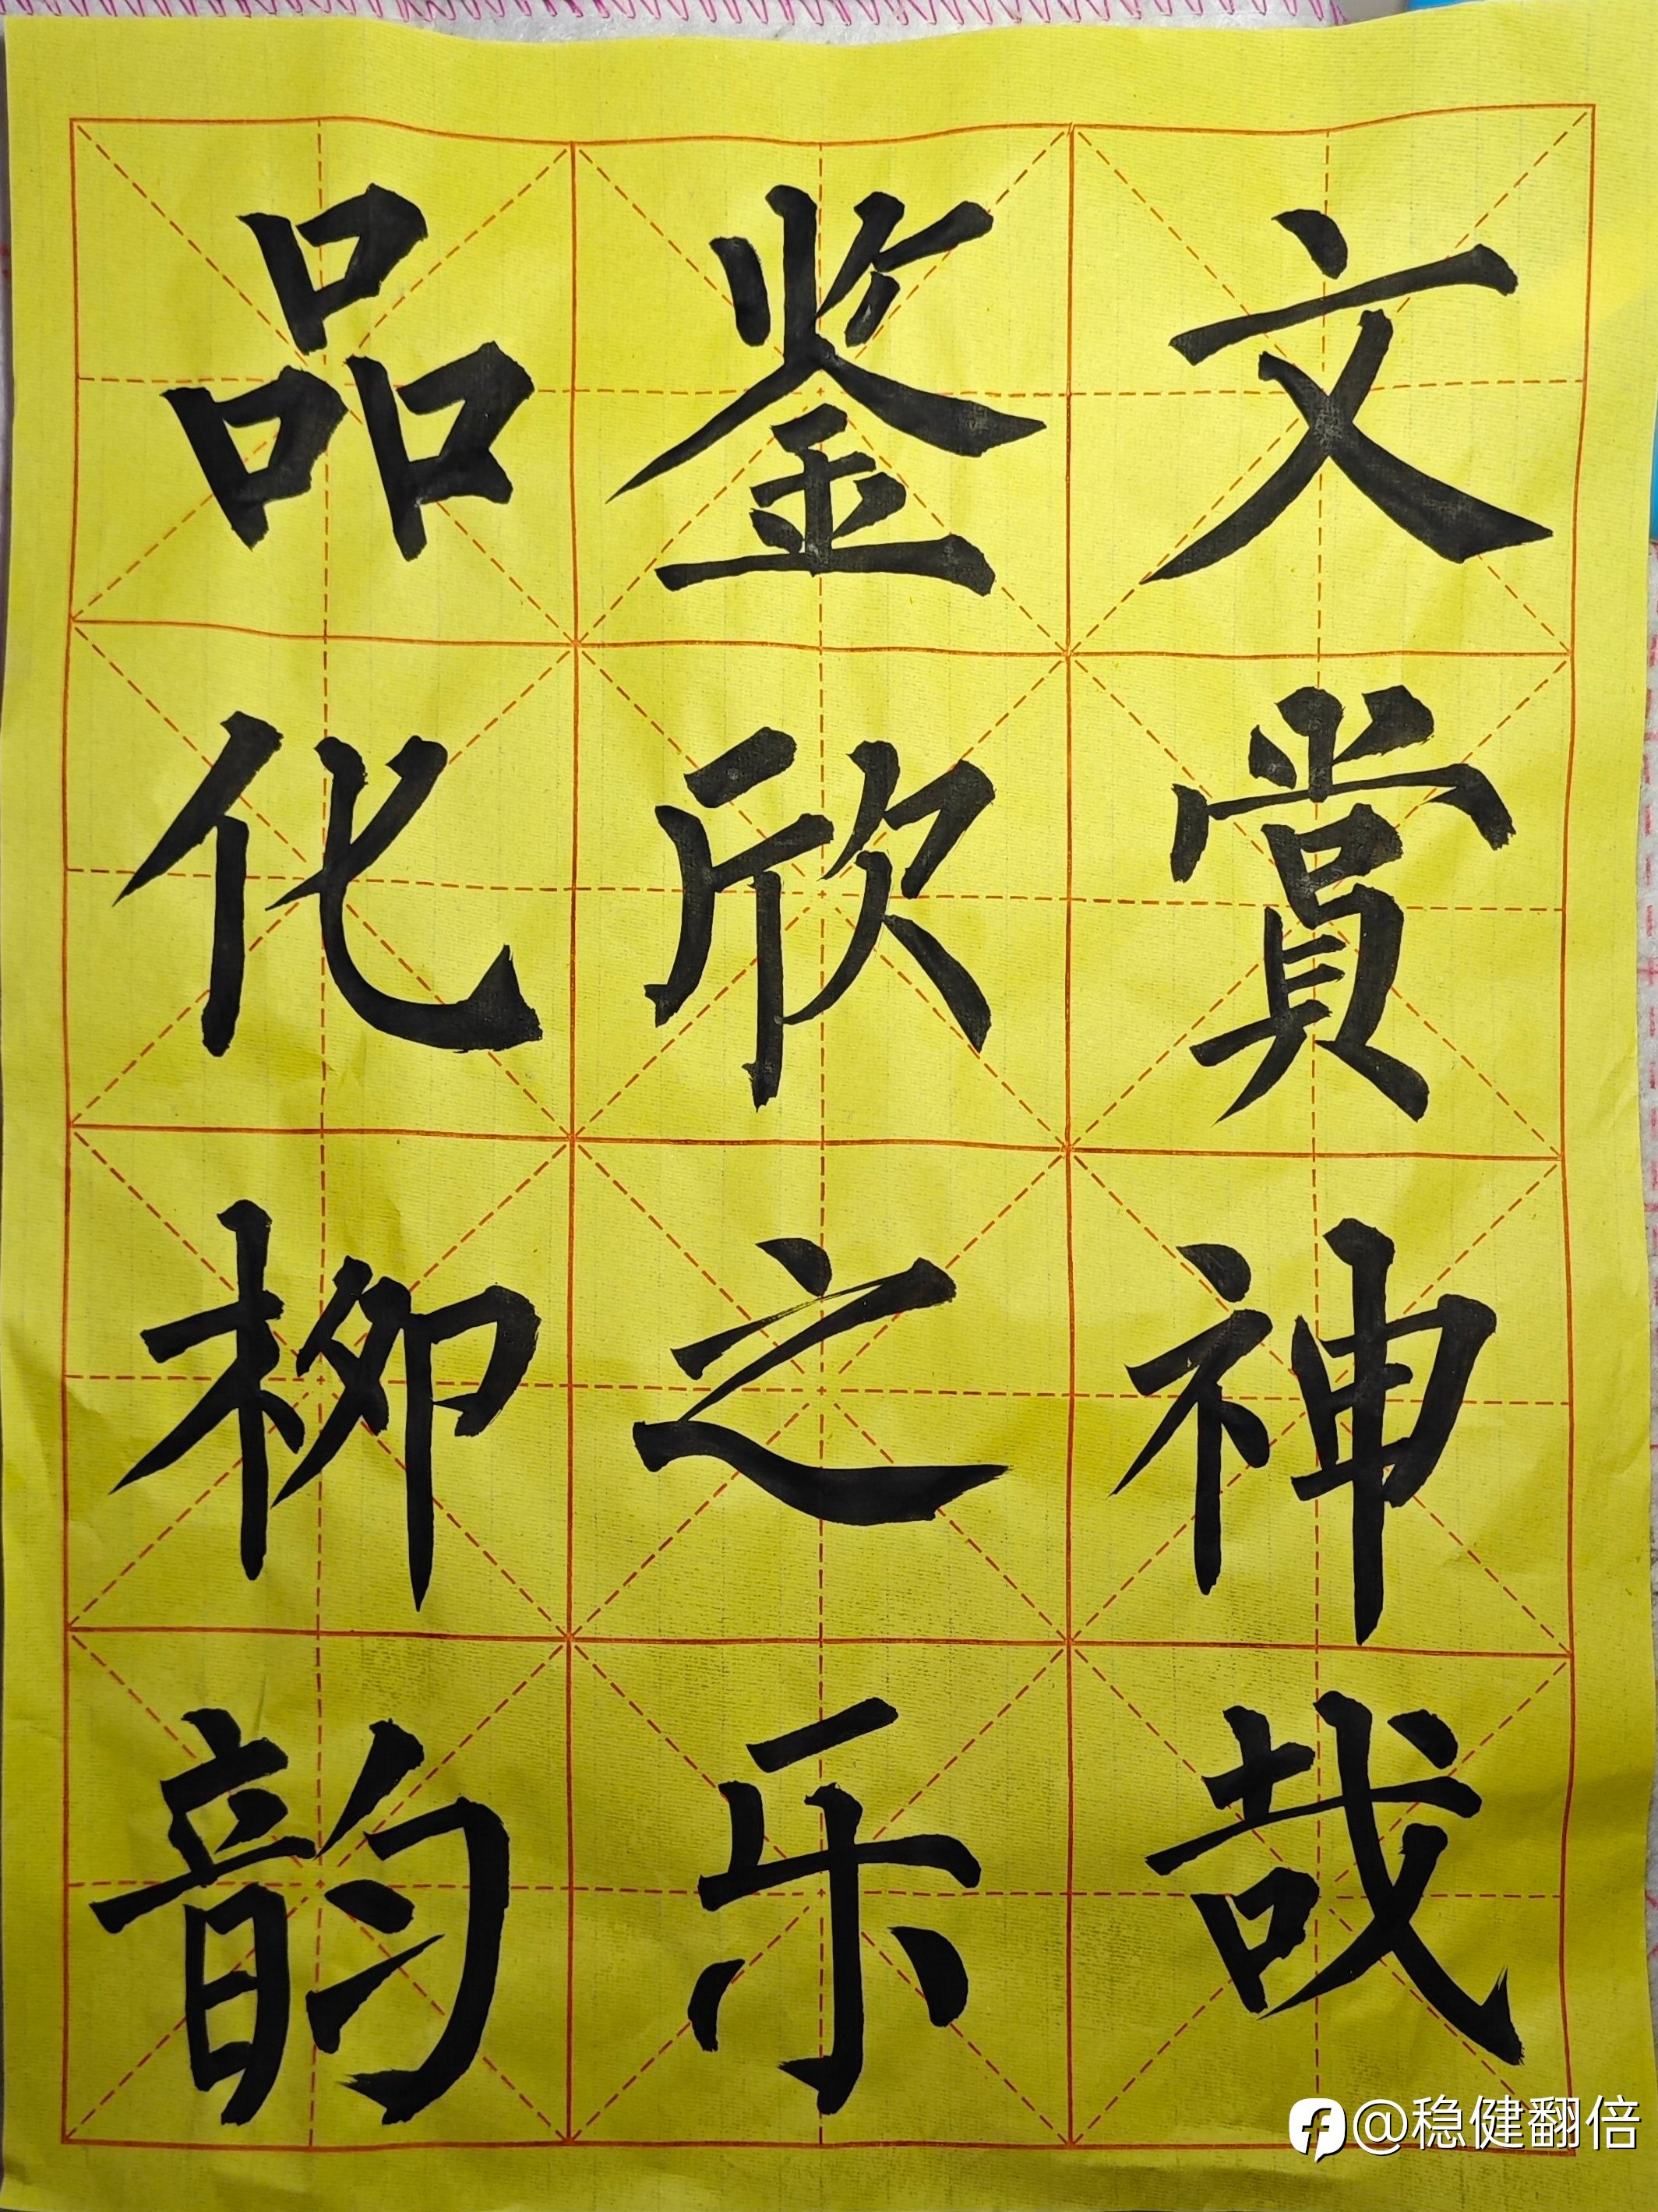 品鉴文
化欣賞
柳之神
韵乐哉
@稳健翻倍